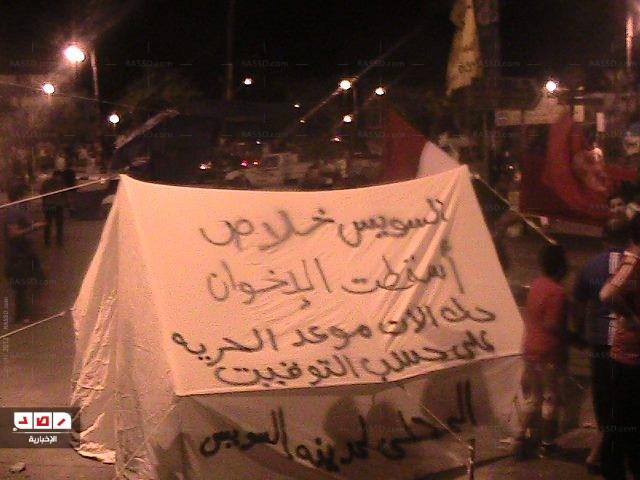 السويس خلاص
أسقطت الإخوان
حان الان موعد الحريه
على حسب التوقيت
المحلى لمدينه السويس
رصد
الإخبارية
RASSD.com